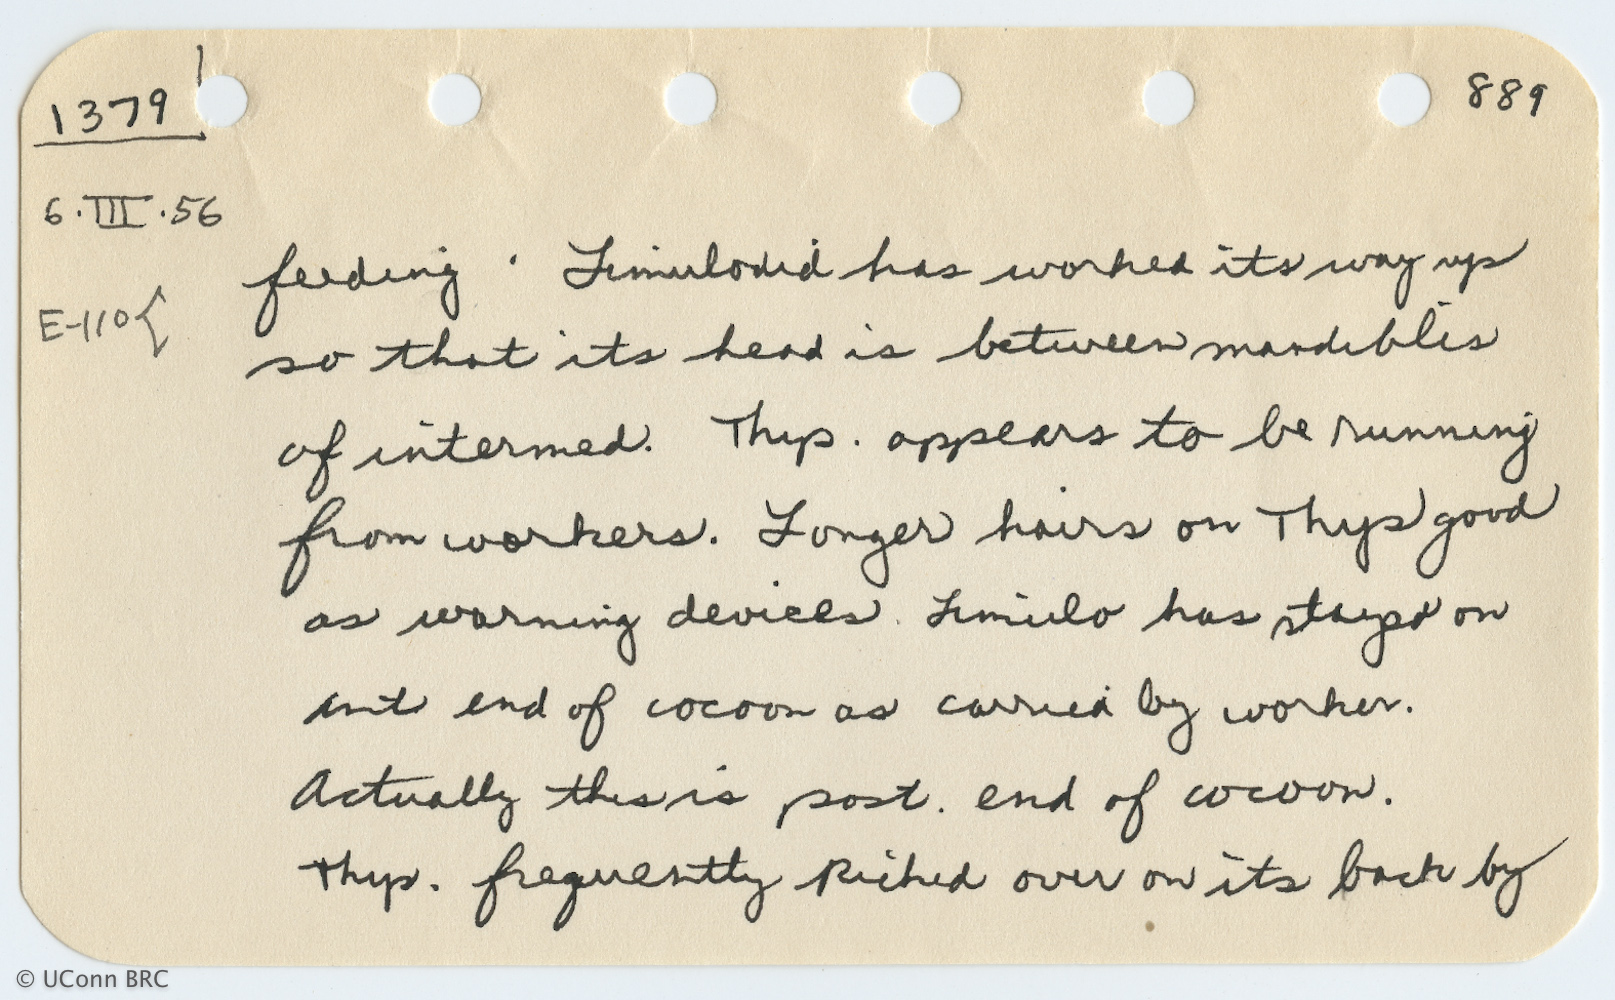 1379
889
6·III·56
E-110{
feeding. Limulodid has worked its way up
so that its head is between mandibles
of intermed. Thys. appears to be running
from workers. Longer hairs on Thys good
as warning devices. Limulo has stayed on
ant end of cocoon as carried by worker.
Actually this is post. end of cocoon.
Thys. frequently kicked over on its back by
© UConn BRC